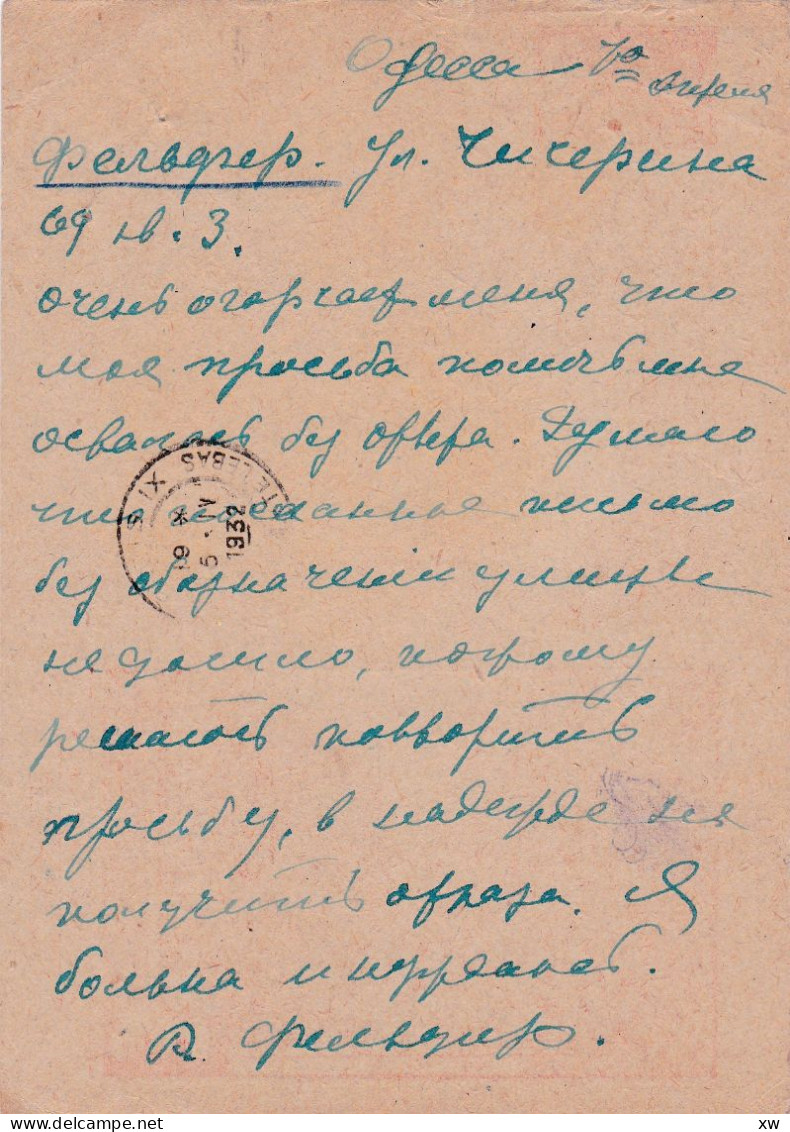 Одесса 10
апреля
Фельдзер. Ул. Чичерина
69 кв. 3.
очень огорчает меня, что
моя просьба помочь мне
осталась без ответа. Думаю
что письмо
без обозначения улицы
не дошло, поэтому
решаюсь повторить
просьбу, в надежде не
получить отказа. Я
больна и нуждаюсь.
Фельдзер.
TELEBAS XI
19 *
5 . V
1932
xw